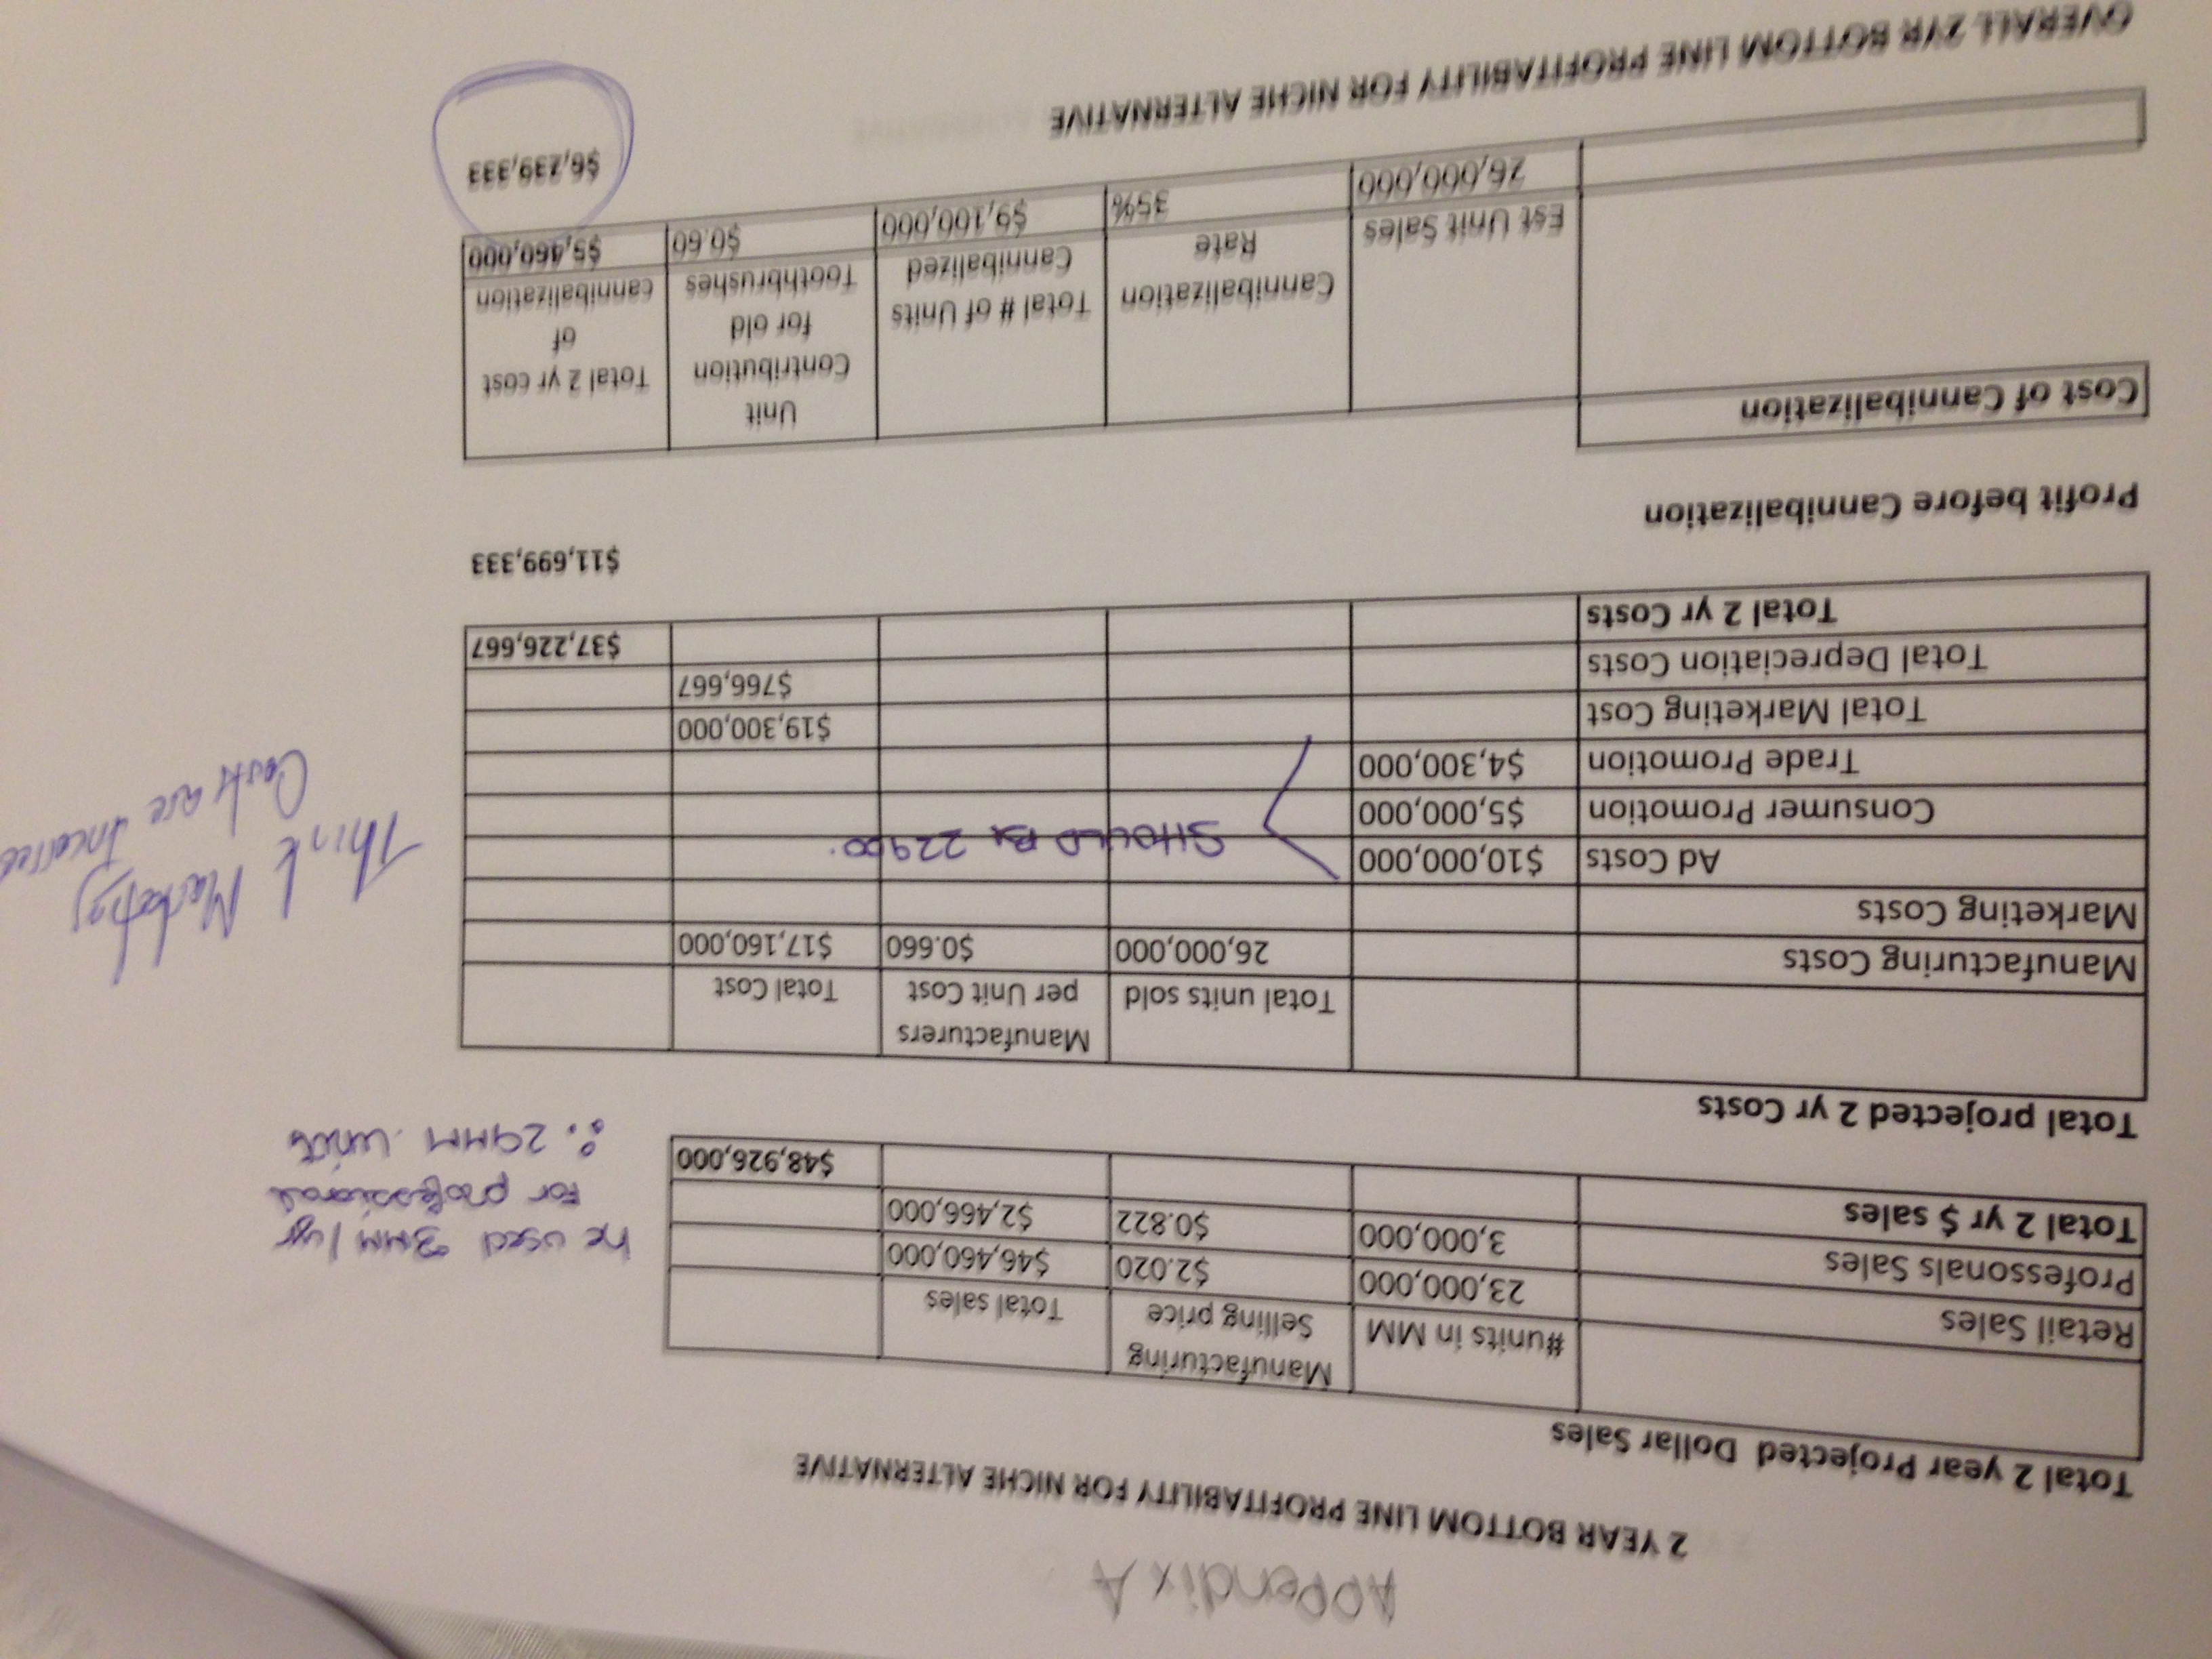 Appendix A
2 YEAR BOTTOM LINE PROFITABILITY FOR NICHE ALTERNATIVE
Total 2 year Projected Dollar Sales
#units in MM Manufacturing Selling price Total sales
Retail Sales 23,000,000 $2.020 $46,460,000
Professonals Sales 3,000,000 $0.822 $2,466,000
Total 2 yr $ sales $48,926,000
he used 3MM/yr
for professional
∴ 29MM units
Total projected 2 yr Costs
Total units sold Manufacturers per Unit Cost Total Cost
Manufacturing Costs 26,000,000 $0.660 $17,160,000
Marketing Costs
Ad Costs $10,000,000
Consumer Promotion $5,000,000
Trade Promotion $4,300,000
SHOULD Be 22900.
Think Marketing
Costs are
Total Marketing Cost $19,300,000
Total Depreciation Costs $766,667
Total 2 yr Costs $37,226,667
$11,699,333
Profit before Cannibalization
Cost of Cannibalization
Est Unit Sales Cannibalization Rate Total # of Units Cannibalized Unit Contribution for old Toothbrushes Total 2 yr cost of cannibalization
26,000,000 35% $9,100,000 $0.60 $5,460,000
$6,239,333
OVERALL 2YR BOTTOM LINE PROFITABILITY FOR NICHE ALTERNATIVE